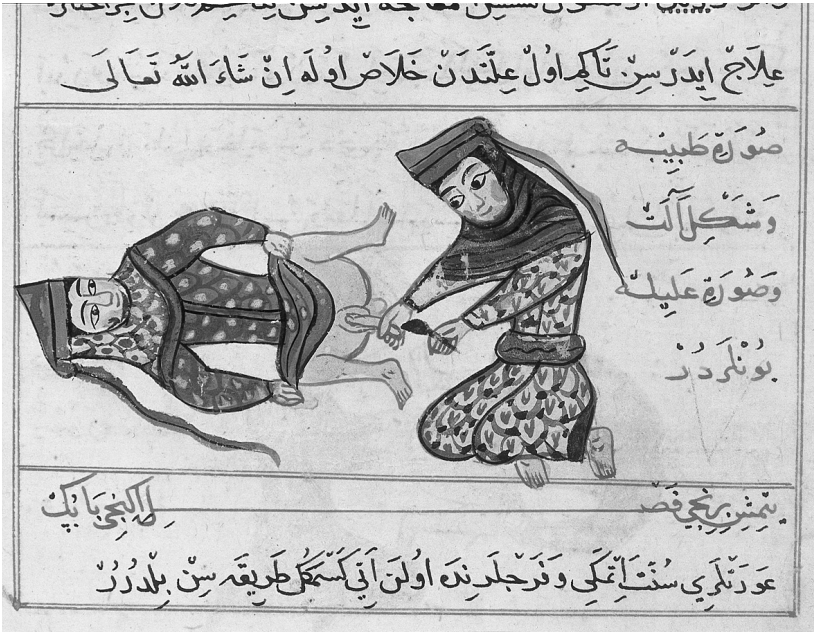 علاج ايدرسن تاكم اول علتدن خلاص اوله ان شاء الله تعالى
صورة طبيبه
وشكل آلت
وصورة عليله
بونلردر
يتمش برنجى فصل ايكنجى بابك
عورتلرى سنت اتمكى وفرجلرنده اولن اتى كسمك طريقه سن بلدرر